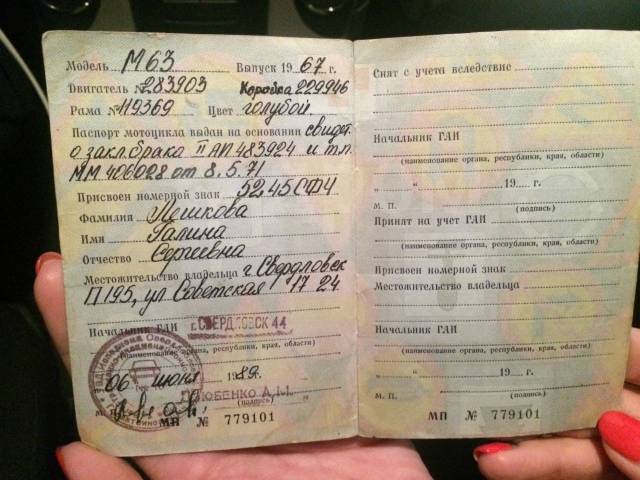 Модель М63 Выпуск 1967 г.
Двигатель № 283903 Коробка 229946
Рама № 119369 Цвет голубой
Паспорт мотоцикла выдан на основании свидет.
о закл. брака II АП 483924 и т.п.
ММ 406028 от 8.5.71
Присвоен номерной знак 52.45 СФЧ
Фамилия Пешкова
Имя Галина
Отчество Сергеевна
Местожительство владельца г. Свердловск
П195, ул. Советская 17 24
Начальник ГАИ г. СВЕРДЛОВСК 44
(наименование органа, республики, края, области)
06 июня 1989г.
М. П. (подпись)
ЛЮБЕНКО А.И.
МП № 779101
Снят с учета вследствие
Начальник ГАИ
(наименование органа, республики, края, области)
„ “ 19 г.
М. П. (подпись)
Принят на учет ГАИ
(наименование органа, республики, края, области)
Присвоен номерной знак
Местожительство владельца
Начальник ГАИ
(наименование органа, республики, края, области)
„ “ 19 г.
М. П. (подпись)
МП № 779101